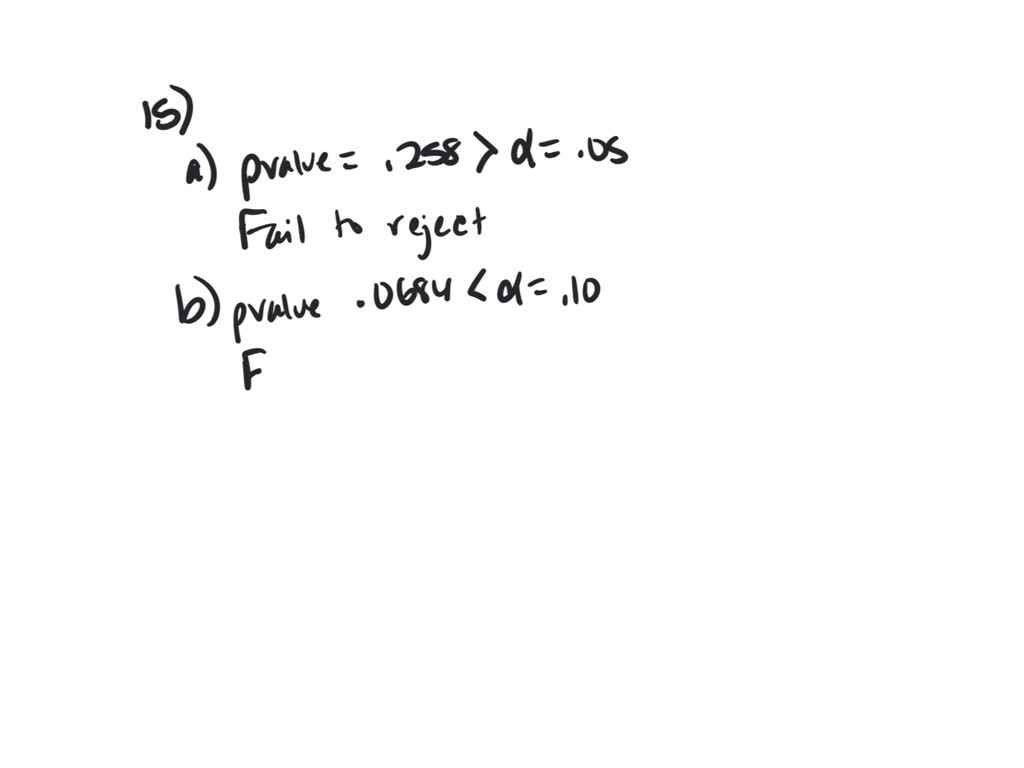 15)
a) pvalue = .258 > α = .05
Fail to reject
b) pvalue .0684 < α = .10
F